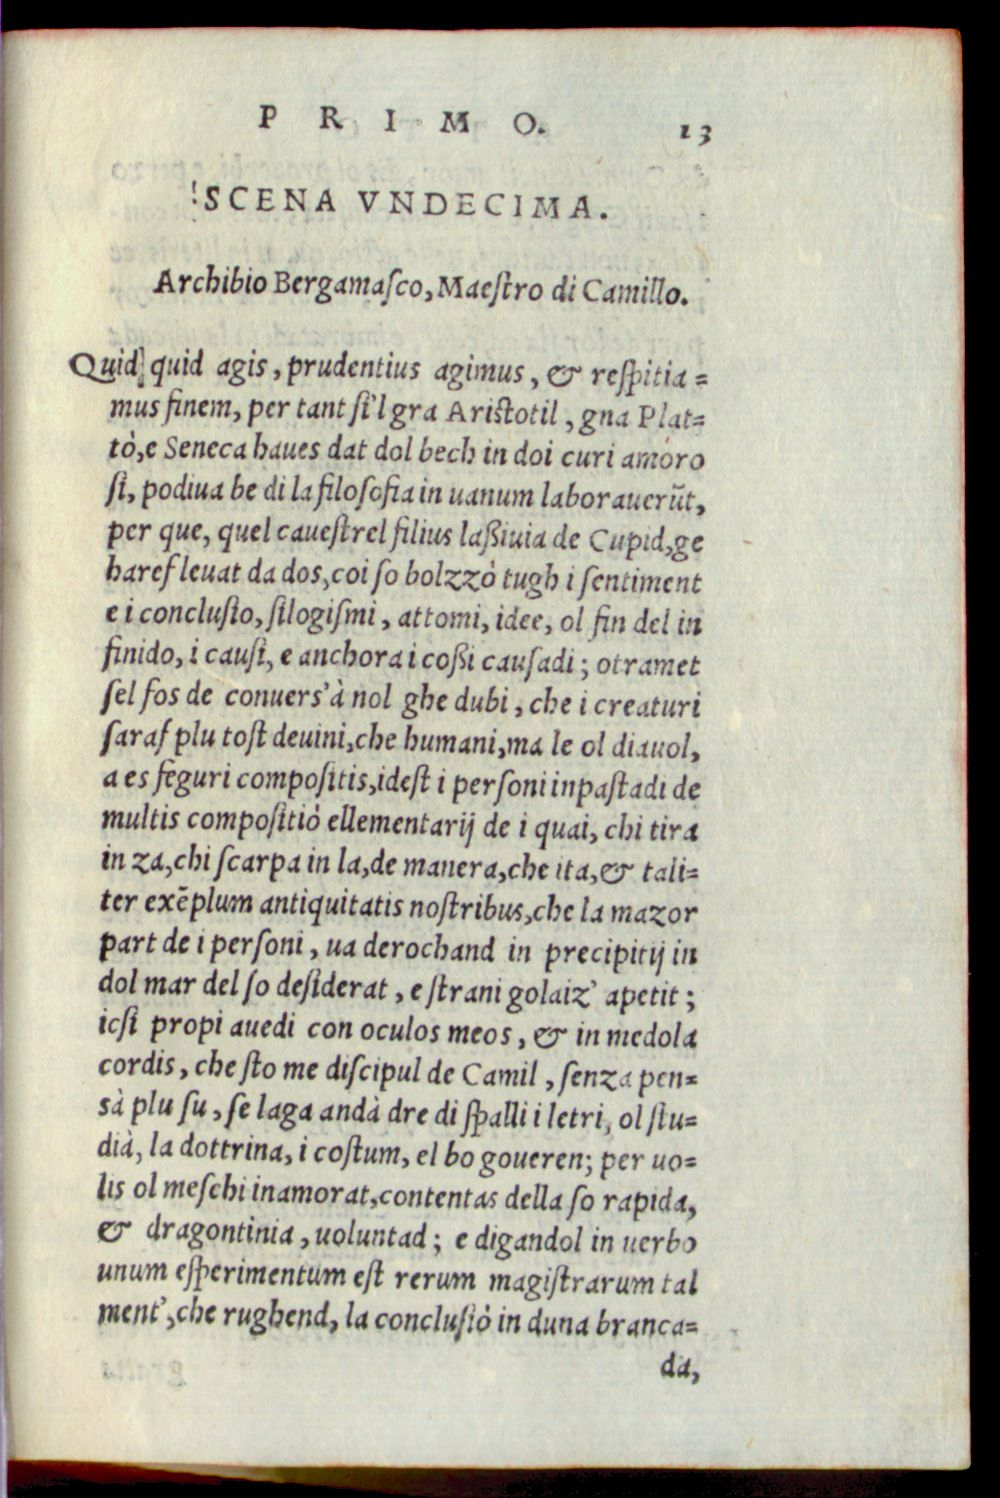 PRIMO. 13
SCENA VNDECIMA.
Archibio Bergamaſco, Maeſtro di Camillo.
Quid quid agis, prudentius agimus, & reſpitia=
mus finem, per tant ſi'l gra Ariſtotil, gna Plat=
tò, e Seneca haues dat dol bech in doi curi amoro
ſi, podiua be di la filoſofia in uanum laborauerūt,
per que, quel caueſtrel filius laßiuia de Cupid, ge
haref leuat da dos, coi ſo bolzzò tugh i ſentiment
e i concluſio, ſilogiſmi, attomi, idee, ol fin del in
finido, i cauſi, e anchora i coßi cauſadi; otramet
ſel fos de conuers'à nol ghe dubi, che i creaturi
ſaraf plu toſt deuini, che humani, ma le ol diauol,
a es feguri compoſitis, ideſt i perſoni inpaſtadi de
multis compoſitiò ellementarij de i quai, chi tira
in za, chi ſcarpa in la, de manera, che ita, & tali=
ter exēplum antiquitatis noſtribus, che la mazor
part de i perſoni, ua derochand in precipitij in
dol mar del ſo deſiderat, e ſtrani golaiz' apetit;
icſi propi auedi con oculos meos, & in medola
cordis, che ſto me diſcipul de Camil, ſenza pen=
sà plu ſu, ſe laga andà dre di ſpalli i letri, ol ſtu=
dià, la dottrina, i coſtum, el bo goueren; per uo=
lis ol meſchi inamorat, contentas della ſo rapida,
& dragontinia, uoluntad; e digandol in uerbo
unum eſperimentum eſt rerum magiſtrarum tal
ment', che rughend, la concluſiò in duna branca=
da,